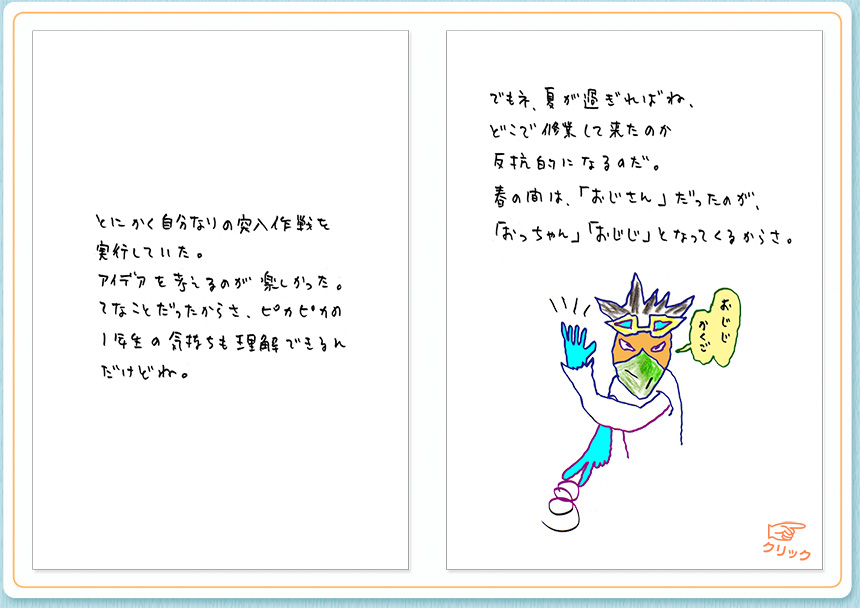 とにかく自分なりの突入作戦を
実行していた。
アイデアを考えるのが楽しかった。
てなことだったからさ、ピカピカの
1年生の気持ちも理解できるん
だけどね。
でもネ、夏が過ぎればね、
どこで修業して来たのか
反抗的になるのだ。
春の間は、「おじさん」だったのが、
「おっちゃん」「おじじ」となってくるからさ。
おじじ
かくご
クリック